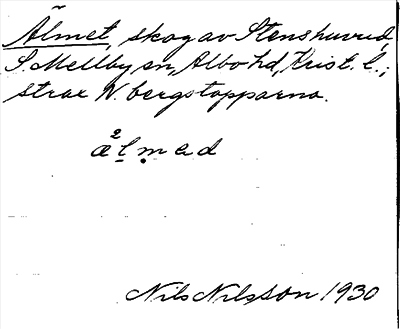 Älmet, skog av Stenshuvud,
S. Mellby sn, Albo hd, Krist. l.;
strax N. bergstopparna.
æ²lmad
Nils Nilsson 1930